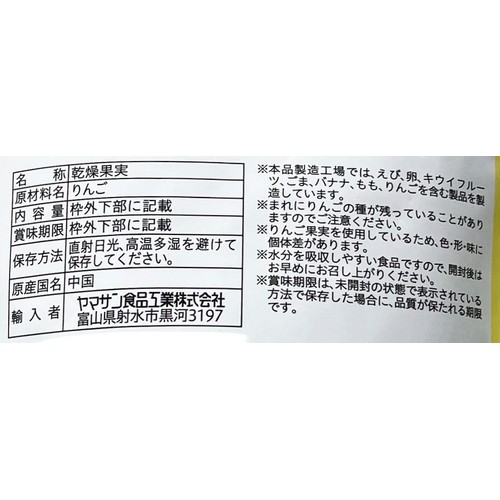 名　称 乾燥果実
原材料名 りんご
内容量 枠外下部に記載
賞味期限 枠外下部に記載
保存方法 直射日光、高温多湿を避けて
保存してください。
原産国名 中国
輸入者 ヤマサン食品工業株式会社
富山県射水市黒河3197
※本品製造工場では、えび、卵、キウイフルー
ツ、ごま、バナナ、もも、りんごを含む製品を製
造しています。
※まれにりんごの種が残っていることがあり
ますのでご注意ください。
※りんご果実を使用しているため、色・形・味に
個体差があります。
※水分を吸収しやすい食品ですので、開封後は
お早めにお召し上がりください。
※賞味期限は、未開封の状態で表示されている
方法で保存した場合に、品質が保たれる期限
です。